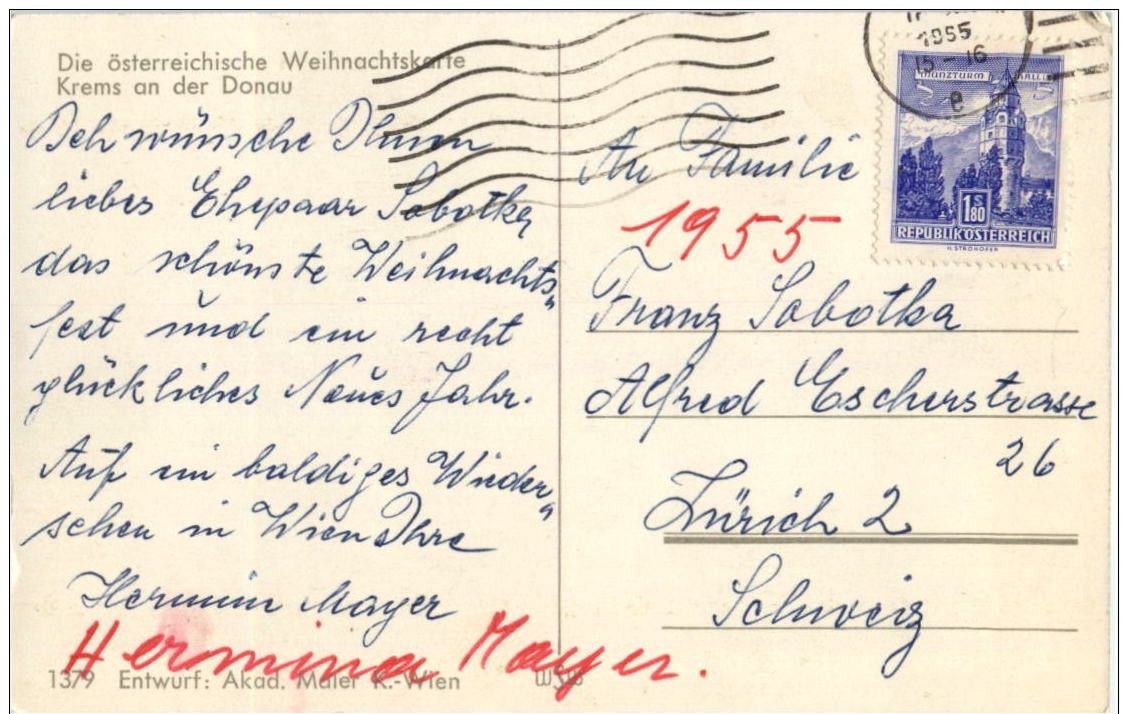 Die österreichische Weihnachtskarte
Krems an der Donau
Ich wünsche Ihnen
liebes Ehepaar Sobotka
das schönste Weihnachts"
fest und ein recht
glückliches Neues Jahr.
Auf ein baldiges Wieder"
sehen in Wien Ihre
Hermin Mayer
Hermina Mayer.
1379 Entwurf: Akad. Maler K.-Wien
WSW
1955
15-16
e
MÜNZTURM HALL
S S
1.80
REPUBLIK ÖSTERREICH
H. STROHOFER
An Familie
1955
Franz Sobotka
Alfred Escherstrasse
26
Zürich 2
Schweiz